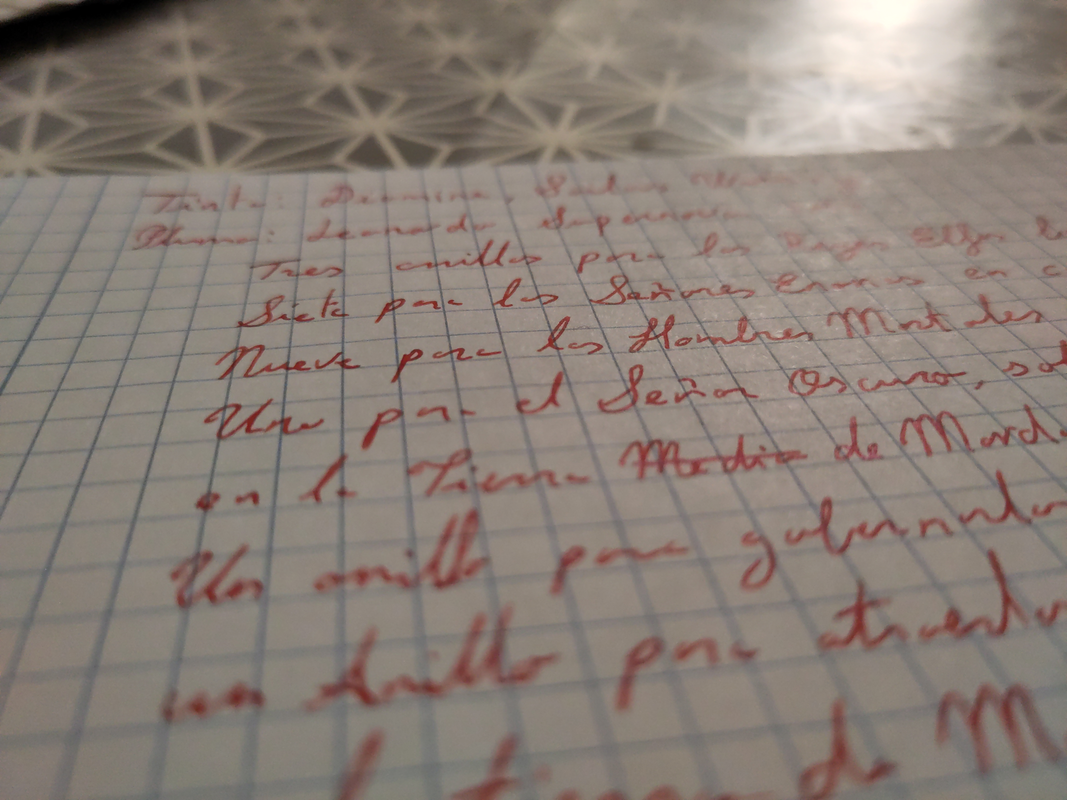 Tinta: Diamine,
Pluma: Leonardo Supernova
Tres anillos para los Reyes Elfos
Siete para los Señores Enanos en
Nueve para los Hombres Mortales
Uno para el Señor Oscuro, sob
en la Tierra Media de Mord
Un anillo para gobernarlos
un Anillo para atraerlos
tierra de M